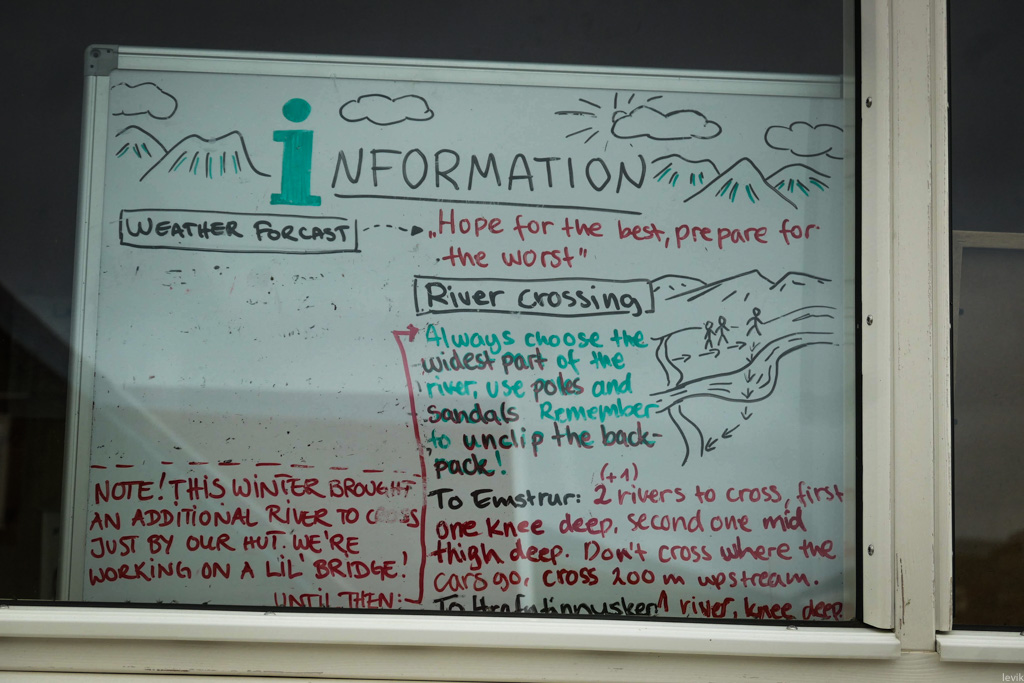 iNFORMATION
WEATHER FORCAST
„Hope for the best, prepare for
the worst"
River crossing
Always choose the
widest part of the
river, use poles and
sandals Remember
to unclip the back-
pack!
(+1)
To Emstrur: 2 rivers to cross, first
one knee deep, second one mid
thigh deep. Don't cross where the
cars go, cross 200 m upstream.
To Hrafntinnusker 1 river, knee deep
NOTE! THIS WINTER BROUGHT
AN ADDITIONAL RIVER TO CROSS
JUST BY OUR HUT. WE'RE
WORKING ON A LIL' BRIDGE!
UNTIL THEN:
levik